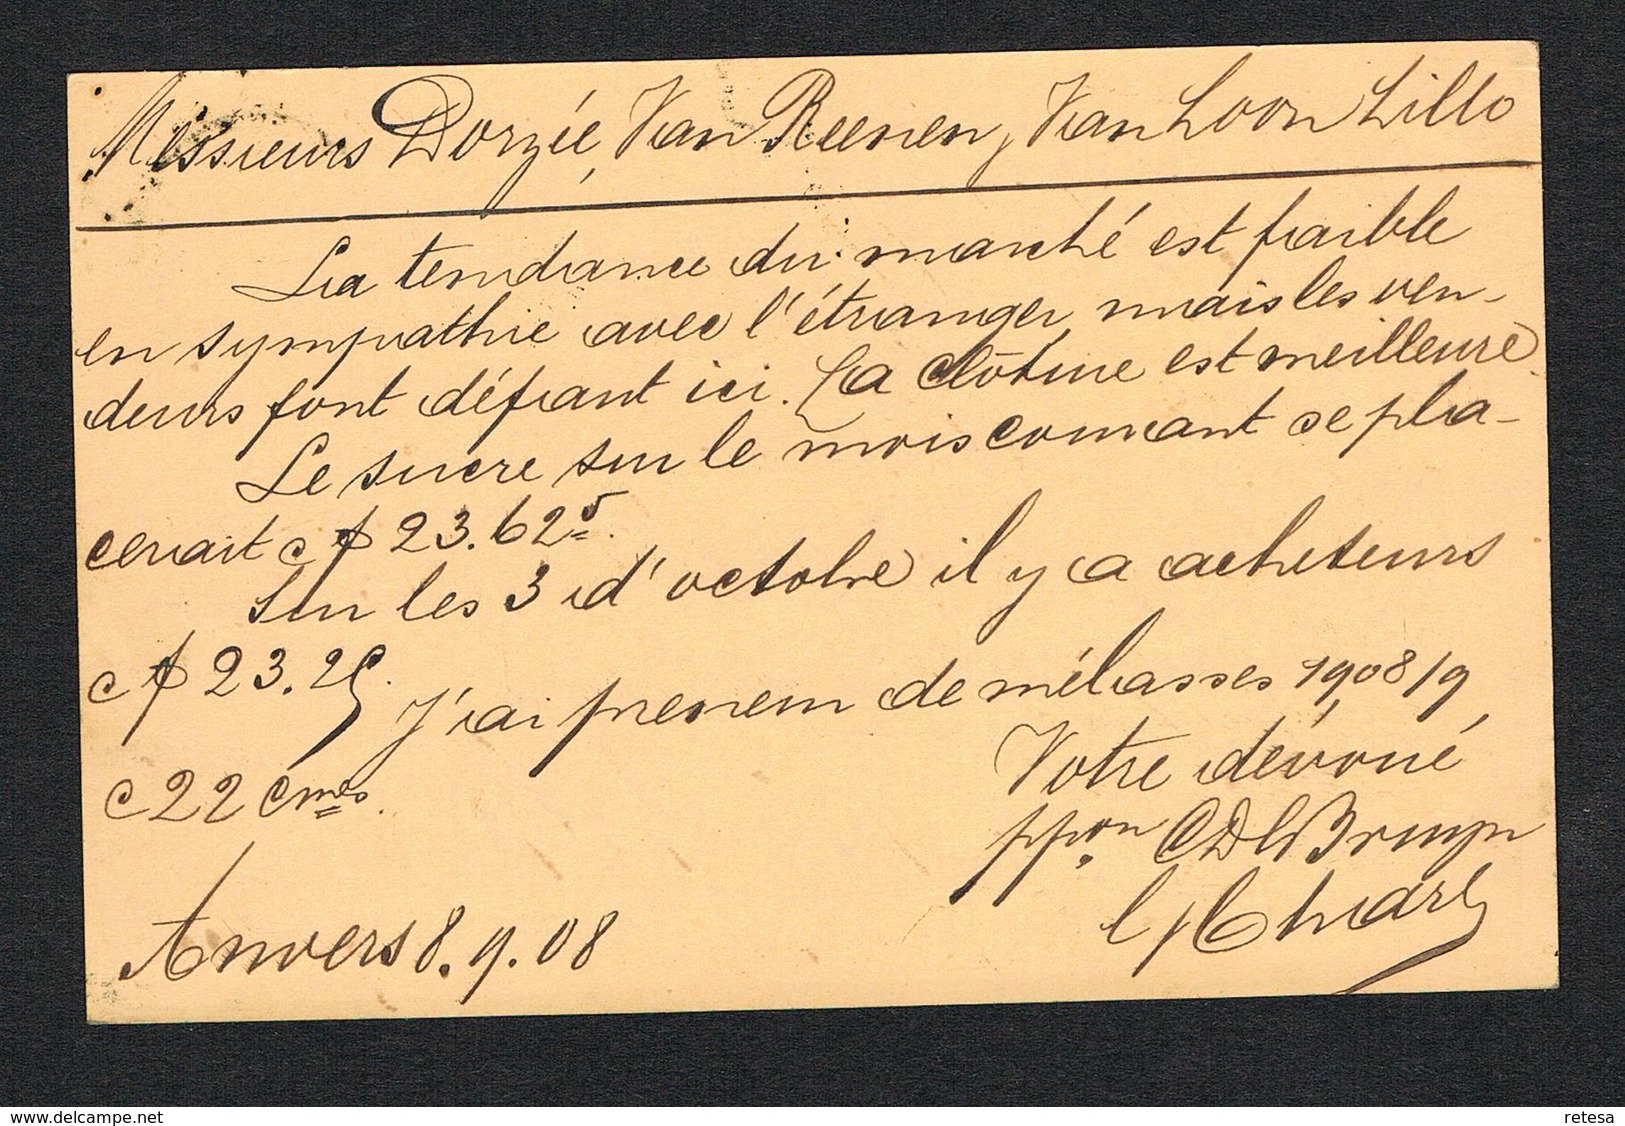 Messieurs Dorzée, Van Reenen, Van Loon Lillo
La tendance du marché est faible
en sympathie avec l'étranger, mais les ven-
deurs font défiant ici. La clôture est meilleure.
Le sucre sur le mois courant se pla-
cerait c. f 23.62⁵.
Sur les 3 d'octobre il y a acheteurs
c f 23.25.
J'ai preneur de mélasses 1908/9
c 22 cmes.
Votre dévoué
ppon De Bruyn
Anvers 8.9.08
delcampe.net
retesa